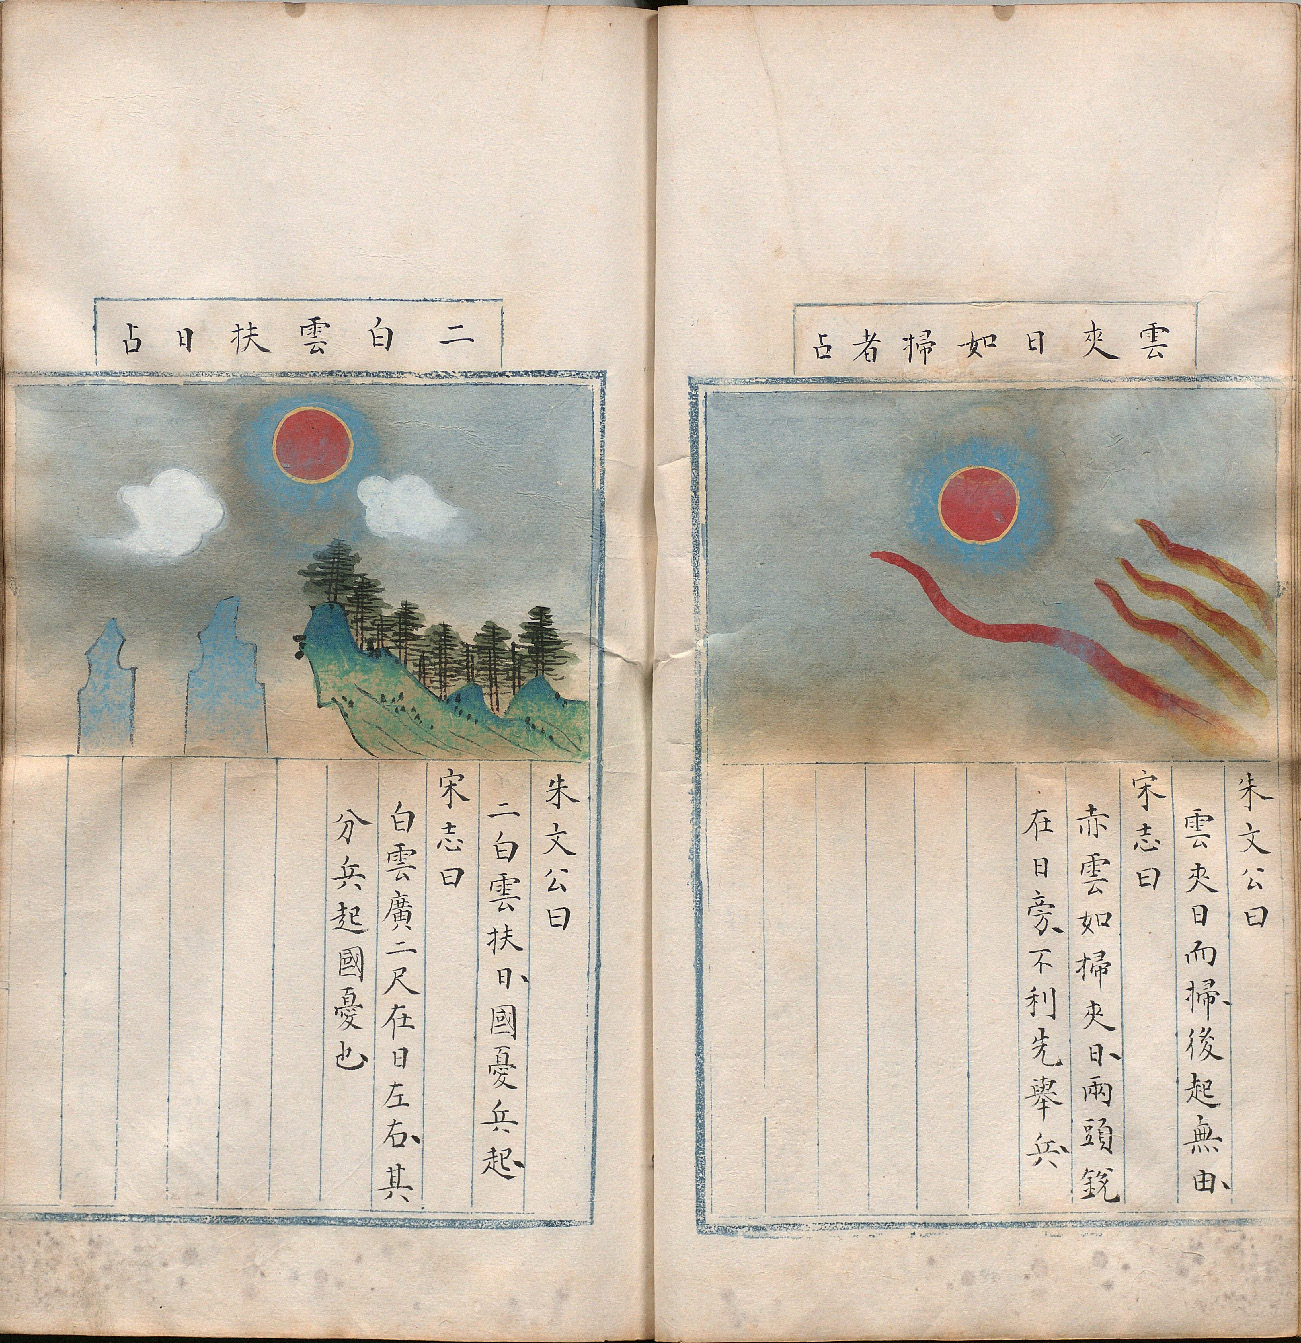 雲夾日如掃者占
朱文公曰
雲夾日而掃後起無由
宋志曰
赤雲如掃夾日兩頭銳
在日旁不利先舉兵
二白雲扶日占
朱文公曰
二白雲扶日國憂兵起
宋志曰
白雲廣二尺在日左右其
分兵起國憂也